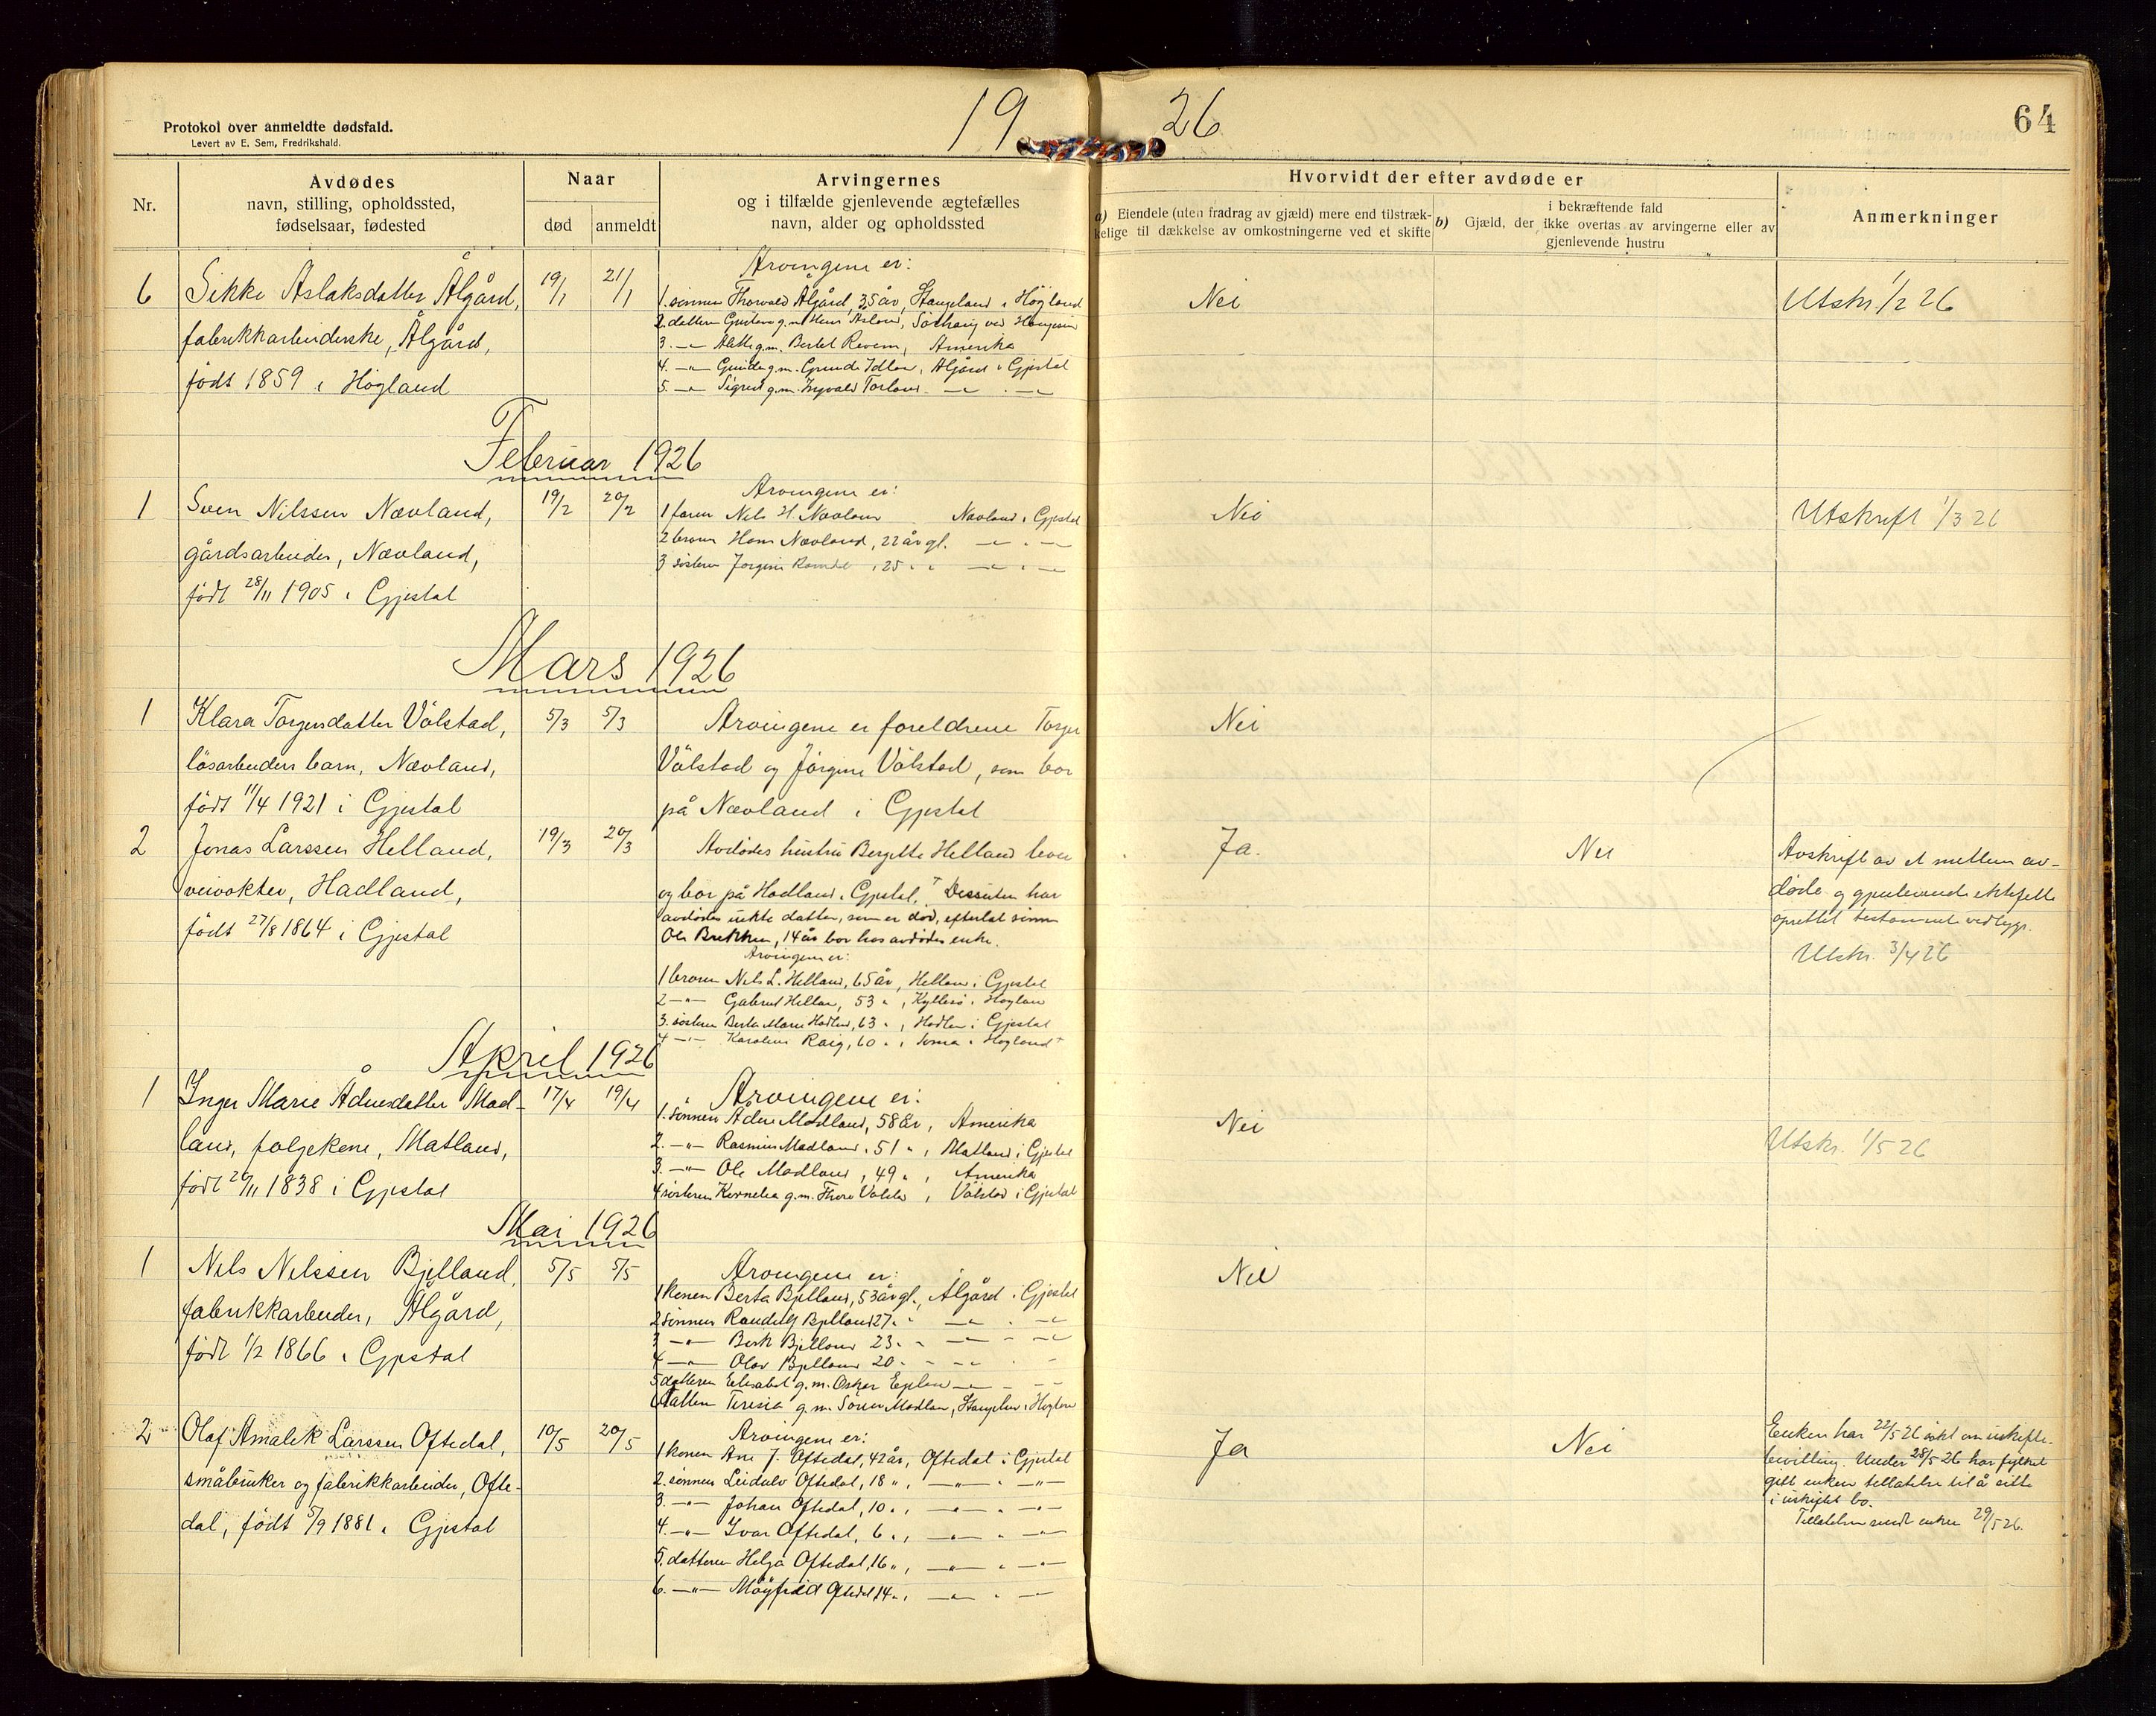 19 26
64
Protokol over anmeldte dødsfald.
Levert av E. Sem, Fredrikshald.
Nr.
Avdødes
navn, stilling, opholdssted,
fødselsaar, fødested
Naar
død
anmeldt
Arvingernes
og i tilfælde gjenlevende ægtefælles
navn, alder og opholdssted
Hvorvidt der efter avdøde er
a) Eiendele (uten fradrag av gjæld) mere end tilstræk-
kelige til dækkelse av omkostningerne ved et skifte
i bekræftende fald
b) Gjæld, der ikke overtas av arvingerne eller av
gjenlevende hustru
Anmerkninger
6 Sikke Aslaksdatter Ålgård, 19/1 21/1
fabrikkarbeiderske, Ålgård,
født 1859 i Högland
Arvingene er:
1. sønnen Thorvald Ålgård, 35 år, Stangeland i Högland
2. datteren Gustava g.m. Hans Åsland,
3. -"- g.m. Bertel Revem, Amerika
4. -"- Gunda g.m. Gunde Idland, Ålgård i Gjestal
5. -"- Sigrid g.m. Ingvald Torland -"- . -"-
Nei
Utskr. 1/2 26
Februar 1926
1 Sven Nilssen Nævland, 19/2 20/2
gårdsarbeider, Nævland,
født 28/11 1905 i Gjestal
Arvingene er:
1 faren Nils H. Nævland Nævland i Gjestal
2 broren Hans Nævland, 22 år gl. -"- . -"-
3 søsteren Jørgine , 25 " " -"- . -"-
Nei
Utskrift 1/3 26
Mars 1926
1 Klara Torgersdatter Völstad, 5/3 5/3
løsarbeiders barn, Nævland,
født 11/4 1921 i Gjestal
Arvingene er foreldrene Torger
Völstad og Jörgine Völstad, som bor
på Nævland i Gjestal
Nei
2 Jonas Larssen Helland, 19/3 20/3
veivokter, Hadland,
født 27/8 1864 i Gjestal
Avdødes hustru Bergitte Helland lever
og bor på Hadland i Gjestal. Dessuten har
avdødes uekte datter, som er død, efterlat sønnen
Ole Brekken, 14 år bor hos avdødes enke.
Arvingene er:
1 broren Nils L. Helland, 65 år, Helland i Gjestal
2 -"- Gabriel Helland, 53 " , Kyllesö i Högland
3. søsteren Berta Marie Hadland, 63 " , Hadland i Gjestal
4 -"- Karoline Roig, 60 " , Soma i Högland
Ja.
Nei
Avskrift av et mellem av-
døde og gjenlevende ektefelle
oprettet testament vedlagt.
Utskr. 3/4 26
April 1926
1 Inger Marie Ådnesdatter Mad- 17/4 19/4
land, folgekone, Matland,
født 26/11 1838 i Gjestal
Arvingene er:
1. sønnen Ådne Madland, 58 år, Amerika
2. -"- Rasmus Madland, 51 " , Matland i Gjestal
3. -"- Ole Madland, 49 " , Amerika
4 søsteren Kornelia g.m. Thore Völstad, Völstad i Gjestal
Nei
Utskr. 1/5 26
Mai 1926
1 Nels Nelssen Bjelland, 5/5 5/5
fabrikkarbeider, Ålgård,
født 1/2 1866 i Gjestal
Arvingene er:
1 konen Berta Bjelland, 53 år gl., Ålgård i Gjestal
2 sønnen Randulf Bjelland 27 " " -"- . -"-
3 -"- Berk Bjelland 23 " " -"- . -"-
4 -"- Olav Bjelland 20 " " -"- . -
5 datteren Elisabet g.m. Oskar -"- . -"-
6 datteren Teresia g.m. Sören Madland, Stangeland i Högland
Nei
2 Olaf Amalek Larssen Oftedal, 10/5 20/5
småbruker og fabrikkarbeider, Ofte-
dal, født 5/9 1881 i Gjestal
Arvingene er:
1 konen Ane J. Oftedal, 42 år, Oftedal i Gjestal
2. sønnen Leidulv Oftedal, 18 " , -"- " -"-
3. -"- Johan Oftedal, 10 " , -"- " -"-
4. -"- Ivar Oftedal, 6 " , -"- " -"-
5. datteren Helga Oftedal, 16 " , -"- " -"-
6. -"- Möyfrid Oftedal, 14 " , -"- " -"-
Ja
Nei
Enken har 22/5 26 søkt om uskifte-
bevilling. Under 28/5 26 har fylket
gitt enken tillatelse til å sitte
i uskiftet bo.
Tillatelsen sendt enken 29/5 26.